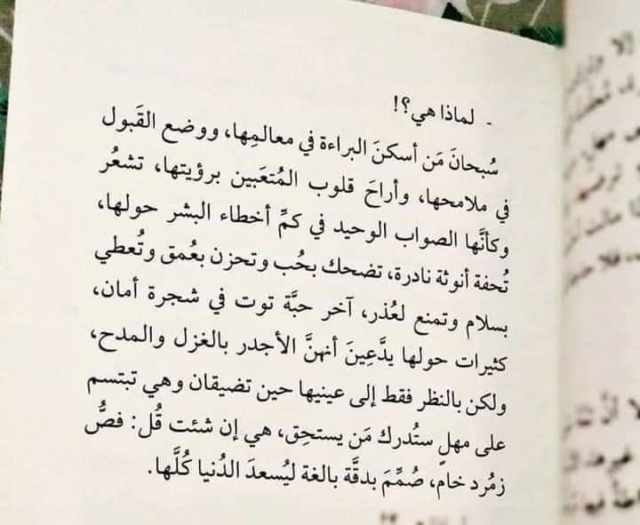 - لماذا هي؟!
سُبحانَ مَن أسكنَ البراءة في معالمِها، ووضع القَبول
في ملامحها، وأراحَ قلوب المُتعَبين برؤيتها، تشعُر
وكأنَّها الصواب الوحيد في كمِّ أخطاء البشر حولها،
تُحفة أنوثة نادرة، تضحك بحُب وتحزن بعُمق وتُعطي
بسلام وتمنع لعُذر، آخر حبَّة توت في شجرة أمان،
كثيرات حولها يدَّعِينَ أنهنَّ الأجدر بالغزل والمدح،
ولكن بالنظر فقط إلى عينيها حين تضيقان وهي تبتسم
على مهلٍ ستُدرك مَن يستحِق، هي إن شئت قُل: فصُّ
زمُرد خام، صُمِّمَ بدقَّة بالغة ليُسعدَ الدُنيا كُلَّها.